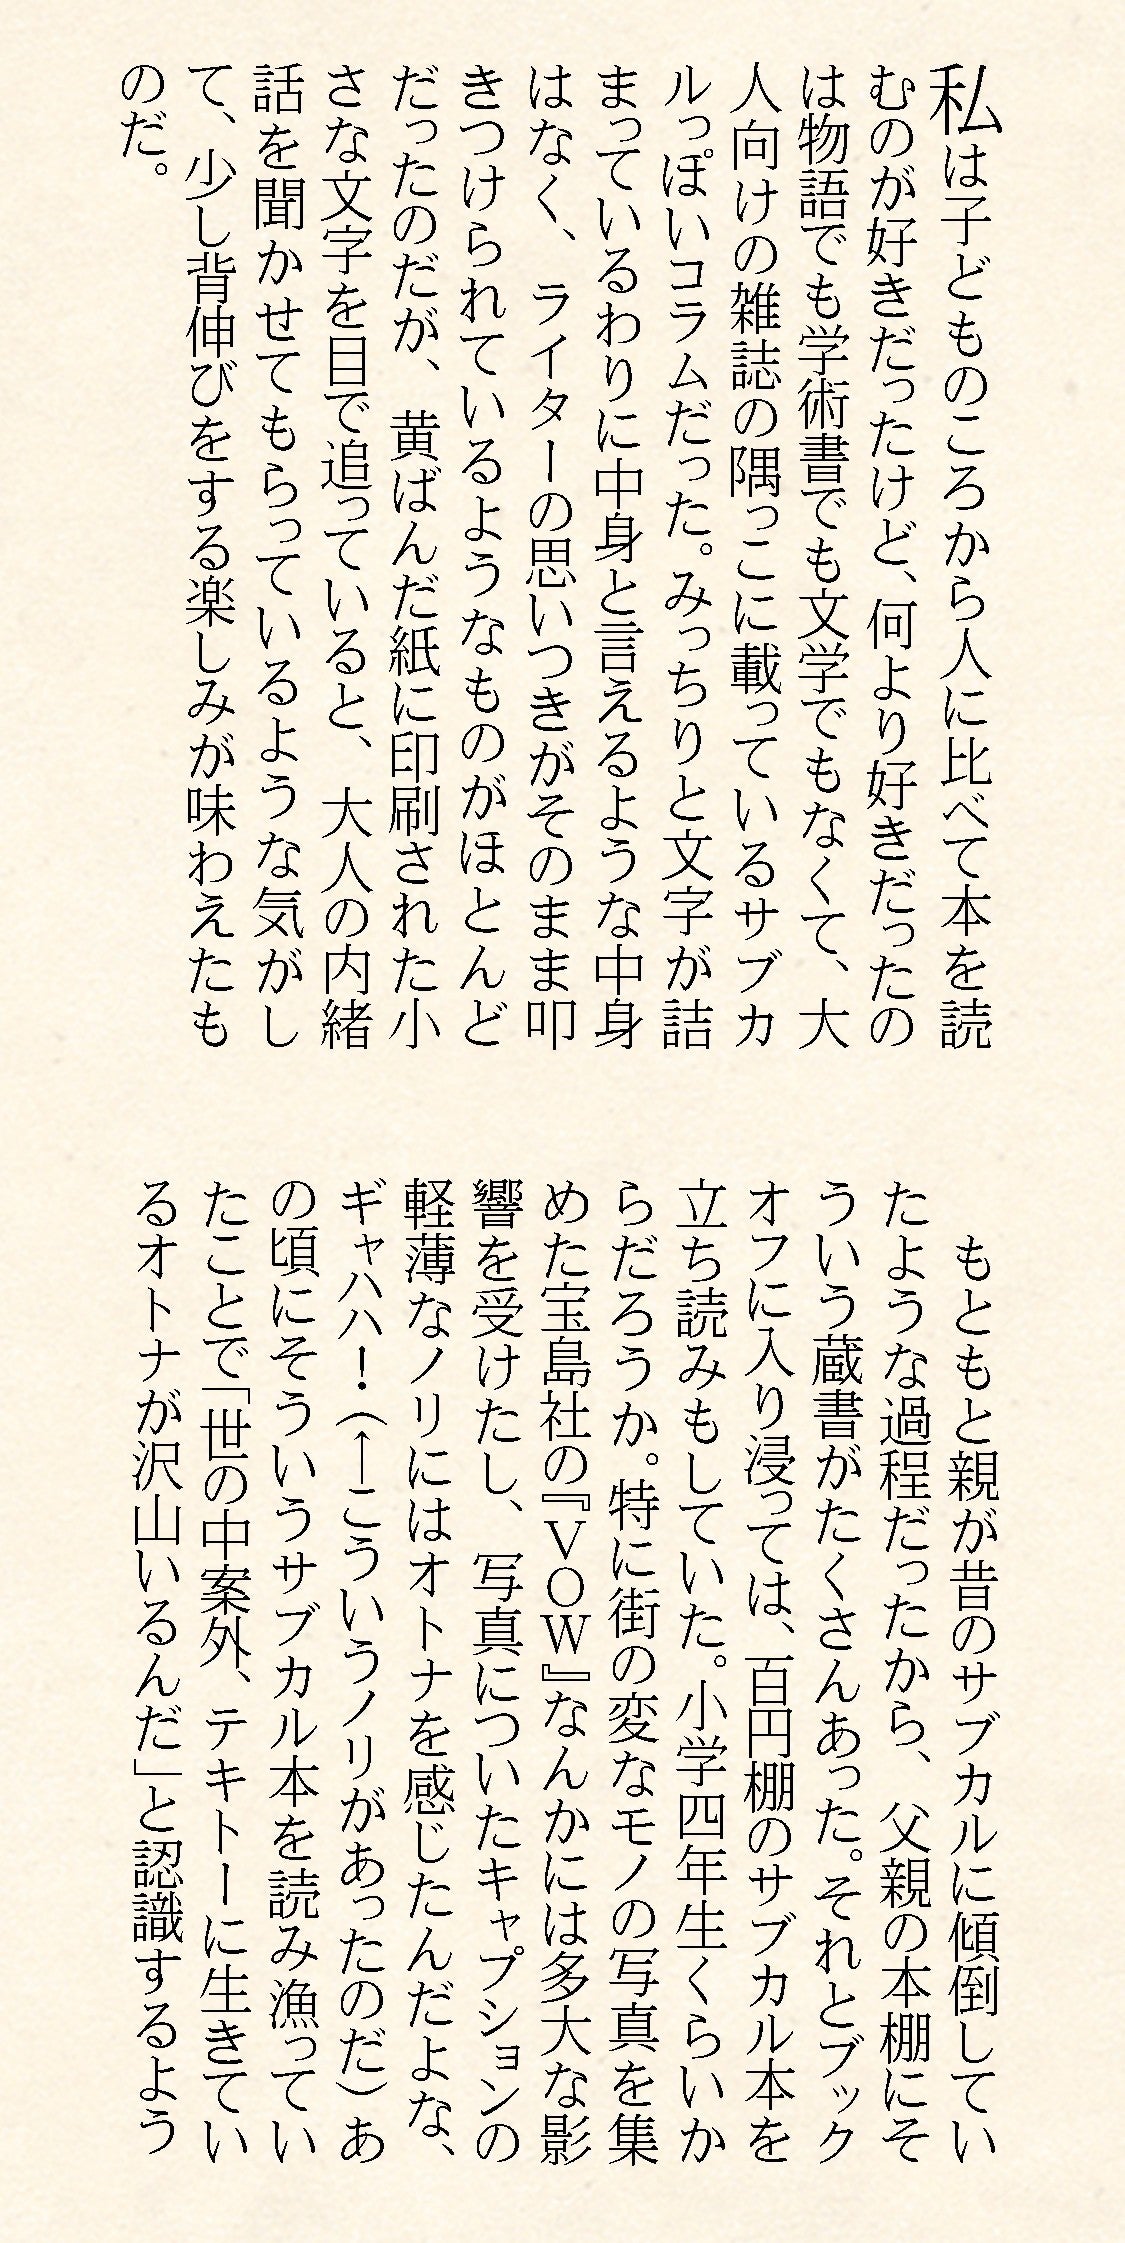 私は子どものころから人に比べて本を読
むのが好きだったけど、何より好きだったの
は物語でも学術書でも文学でもなくて、大
人向けの雑誌の隅っこに載っているサブカ
ルっぽいコラムだった。みっちりと文字が詰
まっているわりに中身と言えるような中身
はなく、ライターの思いつきがそのまま叩
きつけられているようなものがほとんど
だったのだが、黄ばんだ紙に印刷された小
さな文字を目で追っていると、大人の内緒
話を聞かせてもらっているような気がし
て、少し背伸びをする楽しみが味わえたも
のだ。
もともと親が昔のサブカルに傾倒してい
たような過程だったから、父親の本棚にそ
ういう蔵書がたくさんあった。それとブック
オフに入り浸っては、百円棚のサブカル本を
立ち読みもしていた。小学四年生くらいか
らだろうか。特に街の変なモノの写真を集
めた宝島社の『VOW』なんかには多大な影
響を受けたし、写真についたキャプションの
軽薄なノリにはオトナを感じたんだよな、
ギャハハ！（←こういうノリがあったのだ）あ
の頃にそういうサブカル本を読み漁ってい
たことで「世の中案外、テキトーに生きてい
るオトナが沢山いるんだ」と認識するよう